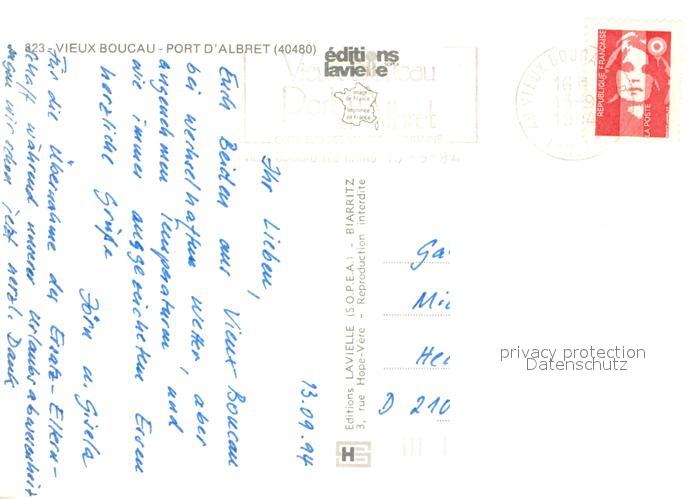 823 - VIEUX BOUCAU - PORT D'ALBRET (40480)
éditions
lavielle
image
de France
imprimée
en France
Vieux Boucau
Port d'Albret
13-9-94
AU VIEUX BOUC
16
RÉPUBLIQUE FRANÇAISE
LA POSTE
13.09.94
Ihr Lieben,
Euch Beiden aus Vieux-Boucau
bei wechselhaftem Wetter, aber
angenehmen Temperaturen und
wie immer ausgezeichetem Essen
herzliche Grüße
Jörn u. Gisela
Für die Übernahme der Ersatz-Eltern-
schaft während unserer Urlaubsabwesenheit
sagen wir schon jetzt herzl. Dank
Editions LAVIELLE (S.O.P.E.A.) - BIARRITZ
3, rue Hope-Vère - Reproduction interdite
Ga
Mi
He
D 210
privacy protection
Datenschutz